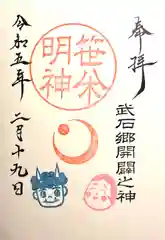 奉拝
武石郷開闢之神
笹焼
明神
令和五年
二月十九日